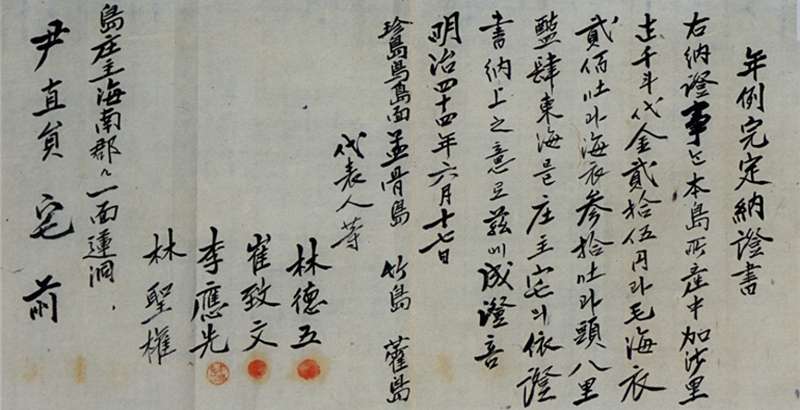 年例完定納證書
右納證事는本島所産中加沙里
五千斗代金貳拾伍円과毛海衣
貳佰吐과海衣參拾吐과頭八里
醢肆東海를庄主宅의依證
書納上之意로玆에成證音
明治四十四年六月十七日
珍島鳥島面孟骨島 竹島 藿島
代表人等
林德五
崔致文
李應先
林聖權
島庄主海南郡々一面蓮洞
尹直員宅前